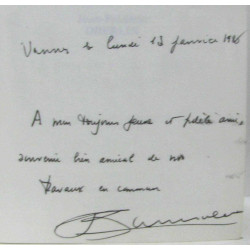 Vannes le lundi 13 janvier 1986
A mon toujours jeune et fidèle ami,
souvenir bien amical de nos
travaux en commun